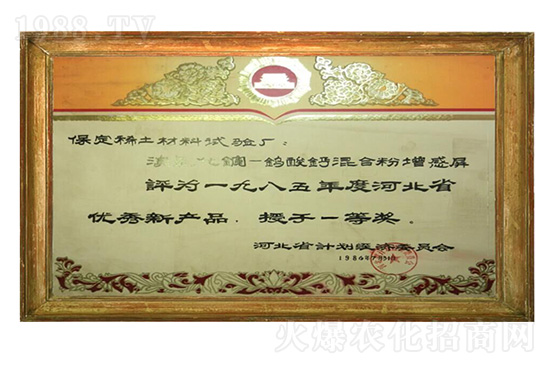 1988.TV
保定稀土材料试验厂:
鑭一鎢酸鈣混合粉增感屏
評为一九八五年度河北省
优秀新产品.授于一等奖。
河北省計划经济委员会
火爆农化招商网